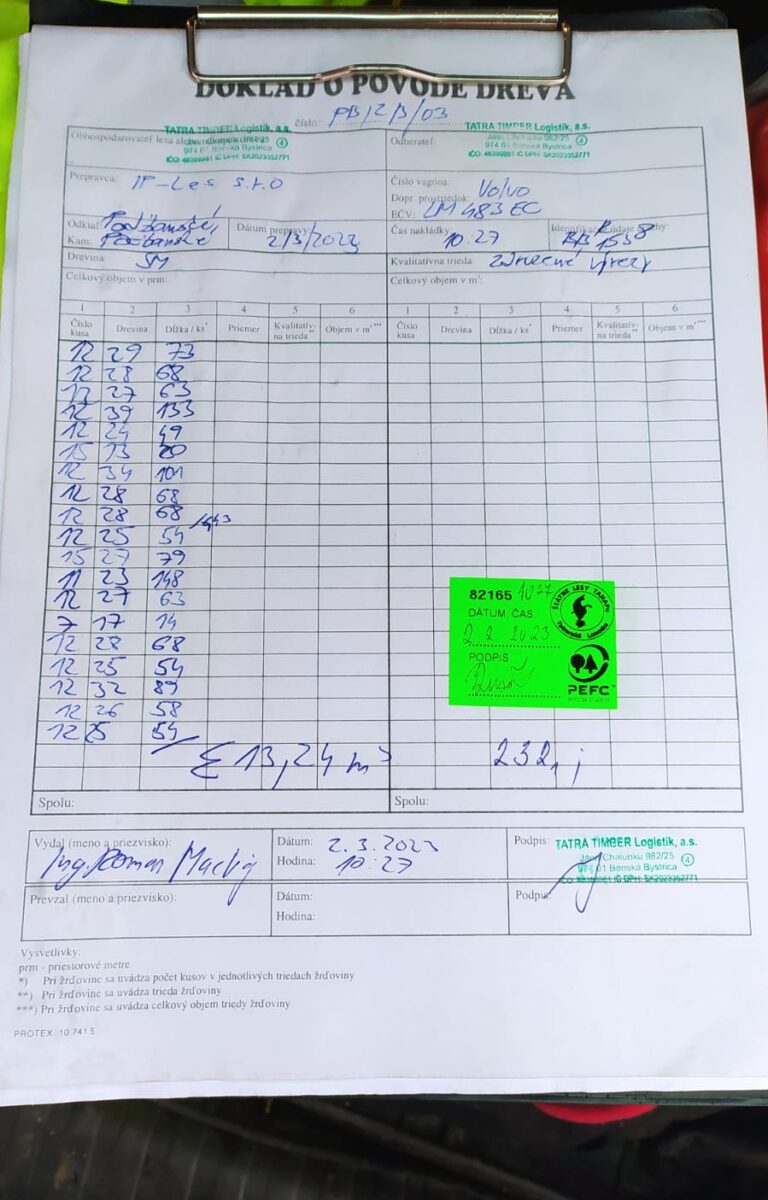 DOKLAD O PÔVODE DREVA
číslo: PB/2/3/03
TATRA TIMBER Logistik, a.s.
974 01 Banská Bystrica
TATRA TIMBER Logistik, a.s.
974 01 Banská Bystrica
Odberateľ
Prepravca: IF-Les s.r.o
Číslo vagóna:
Dopr. prostriedok: Volvo
EČV: LM 483 EC
Odkiaľ: Podbanské,
Kam: Podbanské
Dátum prepravy: 2/3/2023
Čas nakládky: 10:27
Drevina: SM
Kvalitatívna trieda: združené výrezy
Celkový objem v prm:
Celkový objem v m³:
1 2 3 4 5 6 1 2 3 4 5 6
Číslo kusa Drevina Dĺžka / ks* Priemer Kvalitatív- na trieda** Objem v m³*** Číslo kusa Drevina Dĺžka / ks* Priemer Kvalitatív- na trieda** Objem v m³***
12 29 73
12 28 68
12 27 63
12 39 133
12 24 49
15 13 20
12 34 101
12 28 68
12 28 68
12 25 54
15 27 79
11 23 148
12 27 63
7 17 14
12 28 68
12 25 54
12 32 89
12 26 58
12 25 54
Σ 13,24 m³
82165 10:27
DÁTUM, ČAS
2 2 2023
PODPIS
ŠTÁTNE LESY TANAPu
Tatranská Lomnica
PEFC
Spolu:
Spolu:
Vydal (meno a priezvisko):
Ing. Roman
Dátum: 2.3.2023
Hodina: 10:27
Podpis:
TATRA TIMBER Logistik, a.s.
Jána Chalupku 982/25
974 01 Banská Bystrica
Prevzal (meno a priezvisko):
Dátum:
Hodina:
Podpis:
Vysvetlivky:
prm - priestorové metre
*) Pri žrďovine sa uvádza počet kusov v jednotlivých triedach žrďoviny
**) Pri žrďovine sa uvádza trieda žrďoviny
***) Pri žrďovine sa uvádza celkový objem triedy žrďoviny
PROTEX 10 741 5